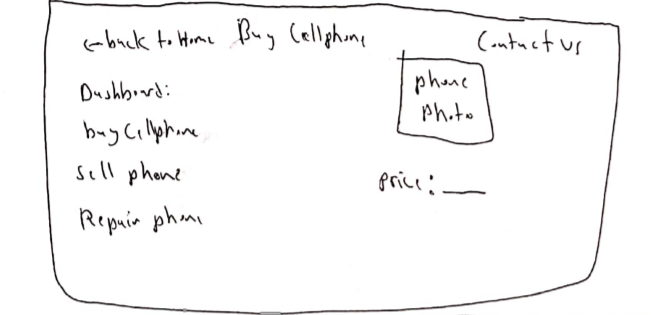 ←back to Home Buy Cellphone Contact us
Dashboard:
buy Cellphone
Sell phone
Repair phone
phone
photo
price: ___